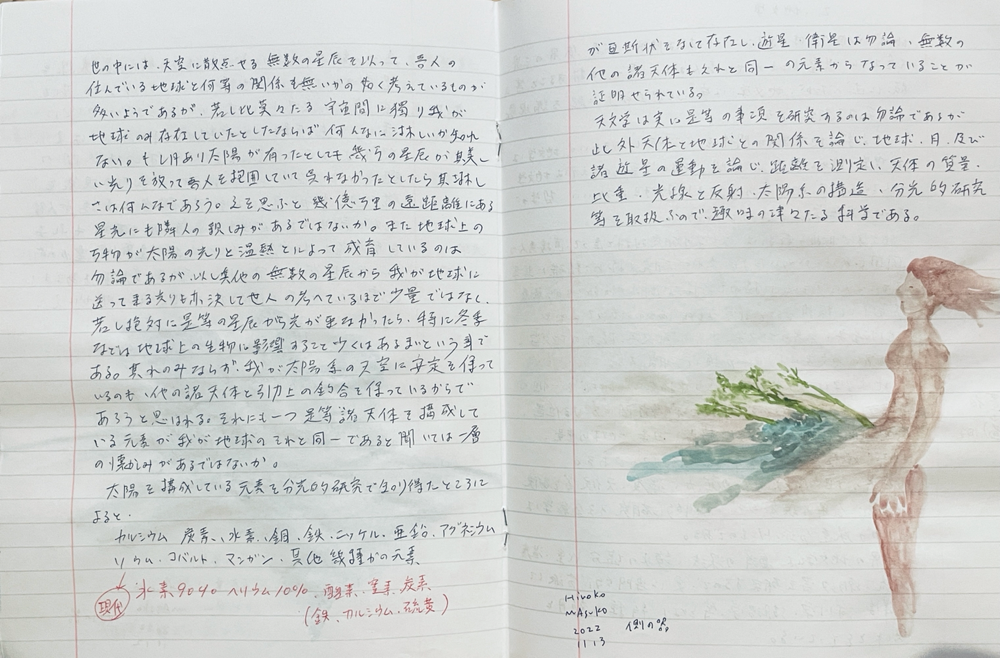 世の中には、天空に散点せる無数の星辰を以って、吾人の
住んでいる地球と何等の関係も無いかの如く考えているものが
多いようであるが、若し此莫々たる宇宙間に獨り我が
地球のみ存在していたとしたならば何んなに淋しいか知れ
ない。もし月あり太陽が有ったとしても幾万の星辰が其美し
い光りを放って吾人を抱囲していて呉れなかったとしたら其淋し
さは何んなであろう。之を思ふと幾億万里の遠距離にある
星光にも隣人の親しみがあるではないか。また地球上の
万物が太陽の光りと温熱とによって成育しているのは
勿論であるが、以し其他の無数の星辰から我が地球に
送って来る光りも亦、決して世人の考へているほど少量ではなく、
若し絶対に是等の星辰から光が来なかったら、特に冬季
などは地球上の生物に影響すること少くはあるまいという事で
ある。其れのみならず、我が太陽系の天空に安定を保って
いるのも、他の諸天体と引力上の釣合を保っているからで
あろうと思はれる。それにも一つ是等諸天体を構成して
いる元素が我が地球のそれと同一であると聞いては一層
の懐しみがあるではないか。
太陽を構成している元素を分光的研究で知り得たところに
よると、
カルシウム 炭素、水素、銅、鉄、ニッケル、亜鉛、マグネシウム
リウム、コバルト、マンガン、其他幾種かの元素
現代
水素90% ヘリウム10%、酸素、窒素、炭素
(鉄、カルシウム、硫黄)
が瓦斯状をなして存在し、遊星、衛星は勿論、無数の
他の諸天体もそれと同一の元素からなっていることが
証明せられている。
天文学は実に是等の事項を研究するのは勿論であるが
此外天体と地球との関係を論じ、地球、月、及び
諸遊星の運動を論じ、距離を測定し、天体の質量、
比重、光線と反射、太陽系の構造、分光的研究
等を取扱ふので、趣味の津々たる科学である。
Hiroko
Masuko
2022
11 13
側の器